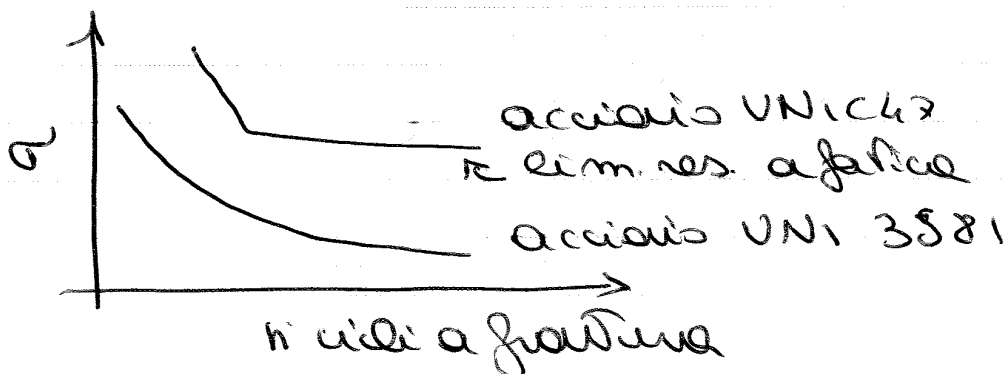 acciaio UNI C47
σ
lim. res. a fatica
acciaio UNI 3581
n cicli a frattura